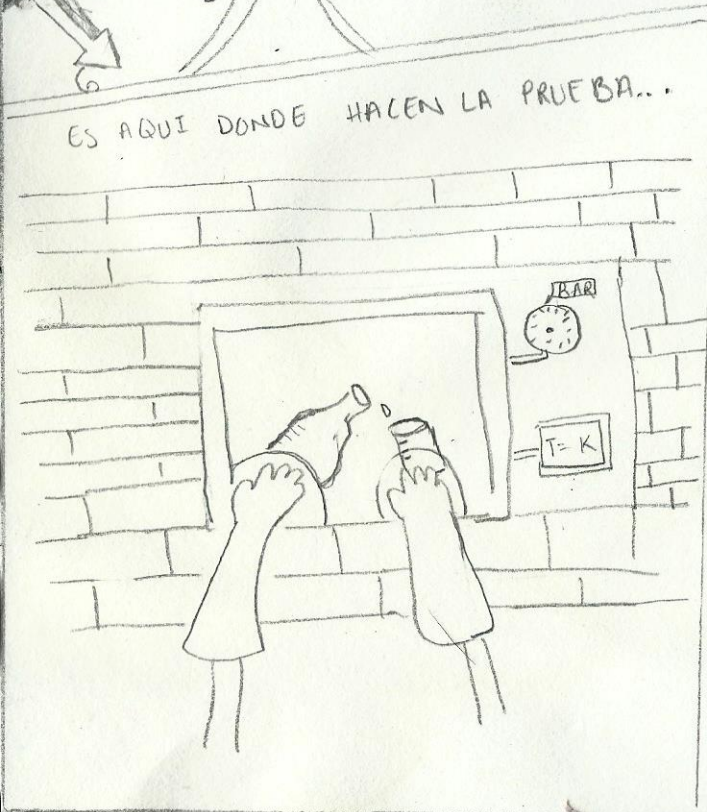 ES AQUI DONDE HACEN LA PRUEBA...
BAR
T= K